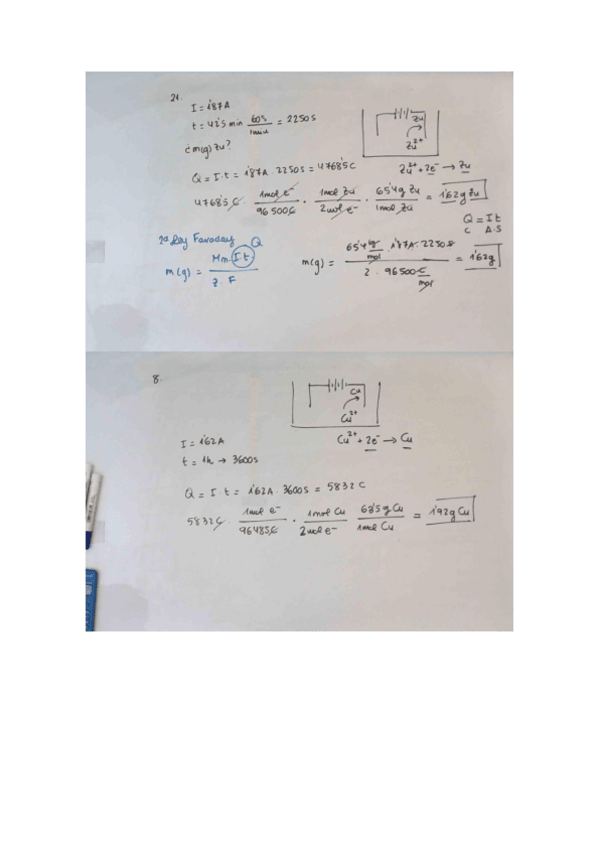 21.
I = 1'87A
t = 42'5 min 60s/1min = 2250 s
¿m(g) Zu?
Zu
Zu²⁺
Q = I·t = 1'87A · 2250s = 4768'5C
Zu²⁺ + 2e⁻ → Zu
4768'5 C · 1mol e⁻/96500C · 1mol Zu/2mol e⁻ · 65'4g Zu/1mol Zu = 1'62g Zu
Q = I t
C A·S
2ª Ley Faraday Q
m(g) = Mm·I·t / z·F
m(g) = 65'4 g/mol · 1'87A · 2250s / 2 · 96500 C/mol = 1'62g
8.
Cu
Cu²⁺
Cu²⁺ + 2e⁻ → Cu
I = 1'62A
t = 1h → 3600s
Q = I·t = 1'62A · 3600s = 5832 C
5832C · 1mol e⁻/96485C · 1mol Cu/2mol e⁻ 63'5g Cu/1mol Cu = 1'92g Cu